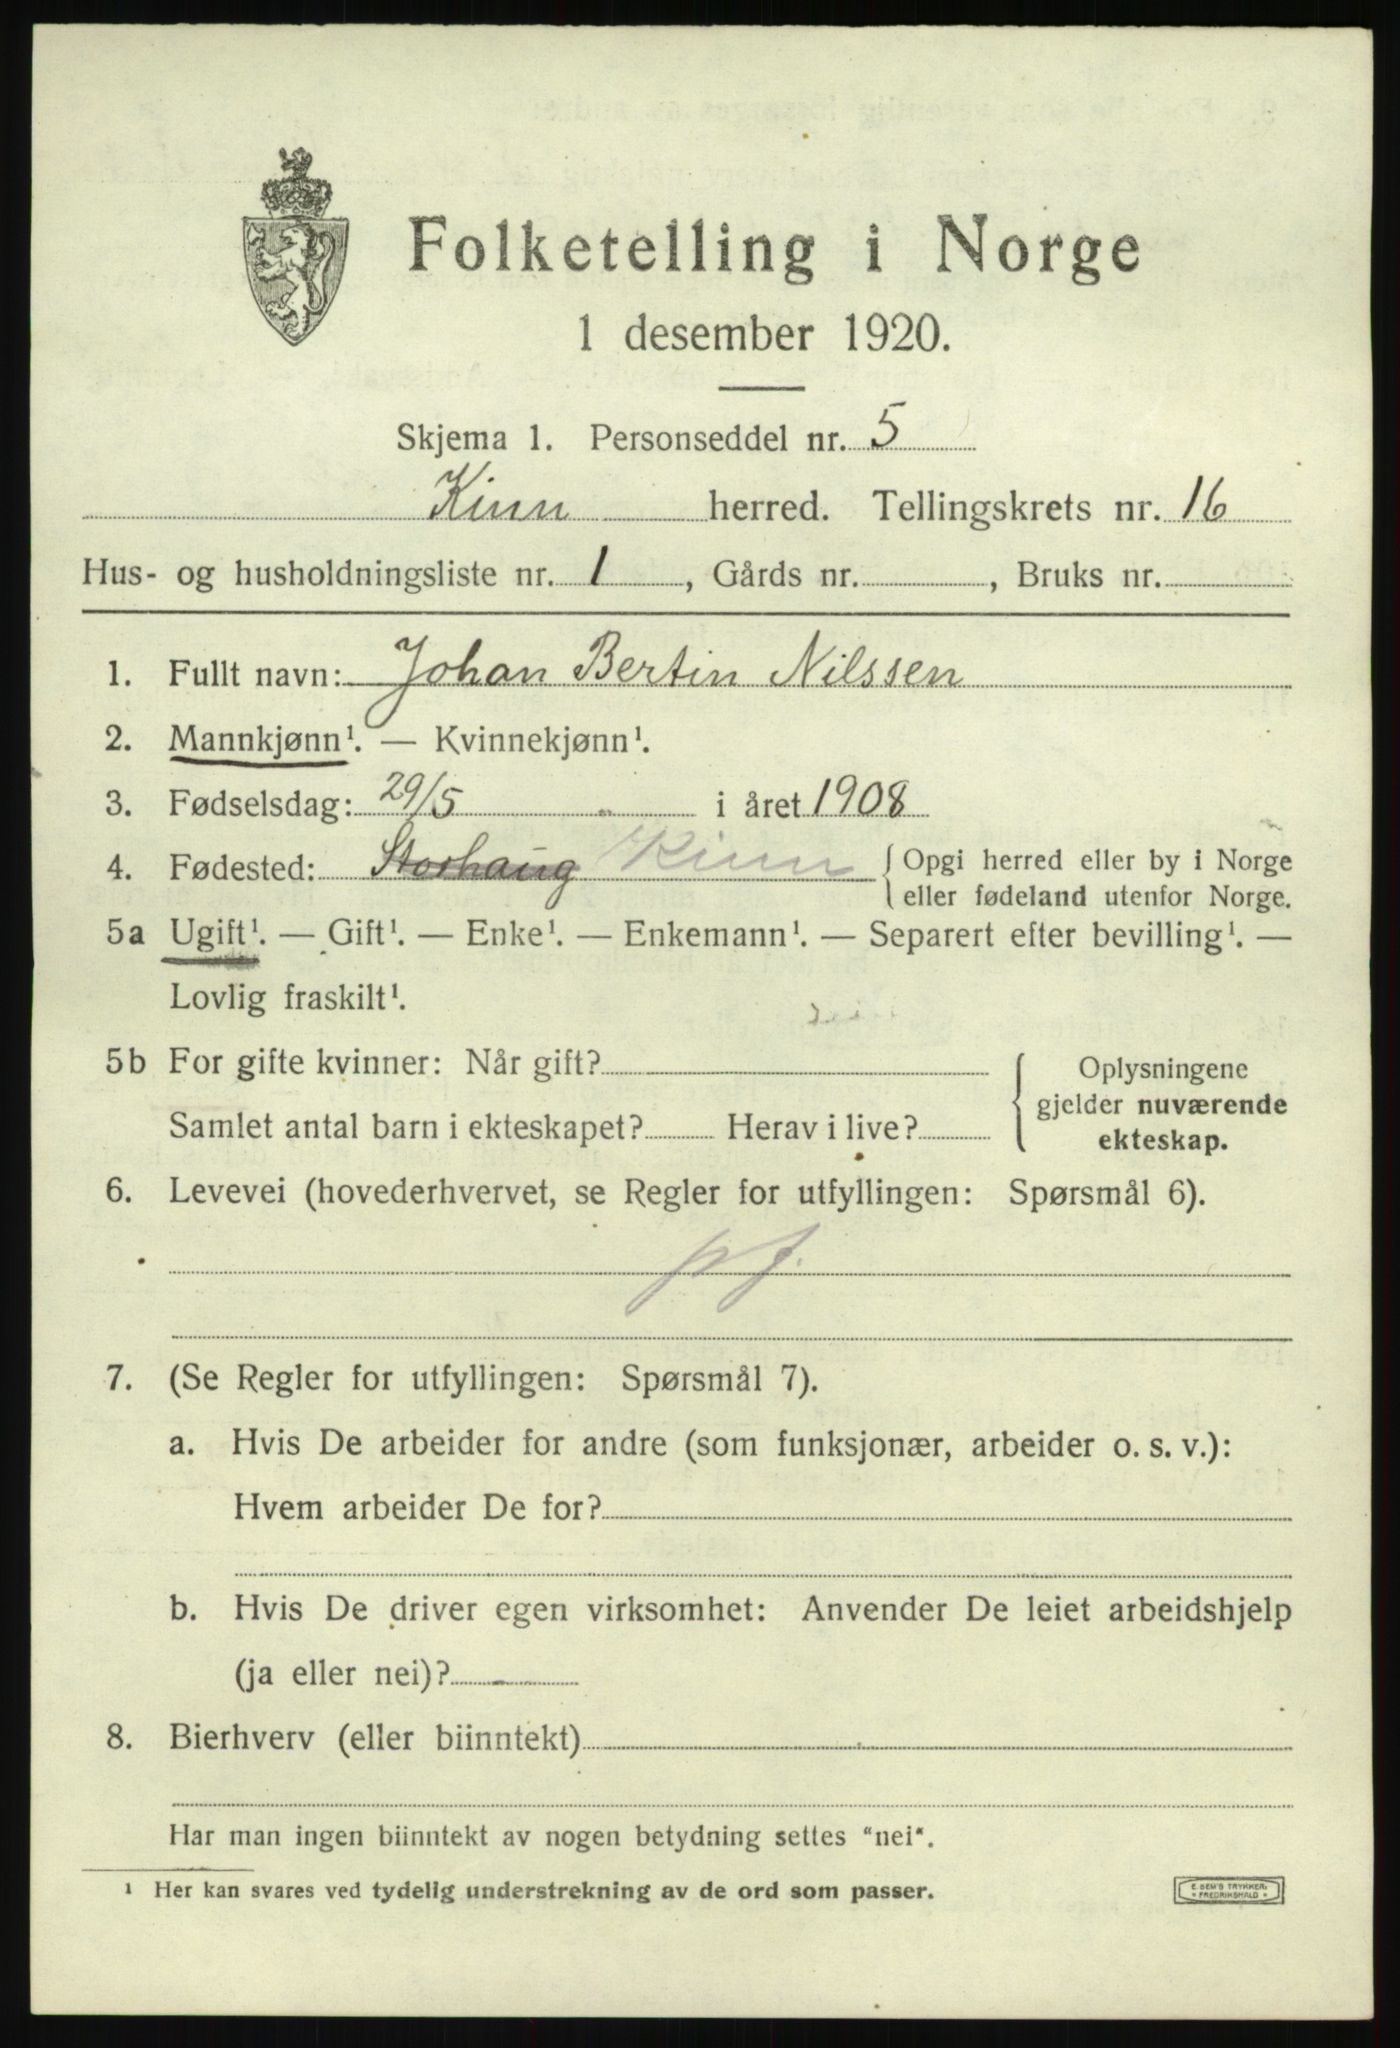 Folketelling i Norge
1 desember 1920.
Skjema 1. Personseddel nr. 5
Kinn herred. Tellingskrets nr. 16
Hus- og husholdningsliste nr. 1, Gårds nr. , Bruks nr.
1. Fullt navn: Johan Bertin Nilssen
2. Mannkjønn¹. — Kvinnekjønn¹.
3. Fødselsdag: 29/5 i året 1908
4. Fødested: Storhaug Kinn { Opgi herred eller by i Norge
eller fødeland utenfor Norge.
5a Ugift¹. — Gift¹. — Enke¹. — Enkemann¹. — Separert efter bevilling¹. —
Lovlig fraskilt¹.
5b For gifte kvinner: Når gift?
Samlet antal barn i ekteskapet? Herav i live?
{ Oplysningene
gjelder nuværende
ekteskap.
6. Levevei (hovederhvervet, se Regler for utfyllingen: Spørsmål 6).
7. (Se Regler for utfyllingen: Spørsmål 7).
a. Hvis De arbeider for andre (som funksjonær, arbeider o. s. v.):
Hvem arbeider De for?
b. Hvis De driver egen virksomhet: Anvender De leiet arbeidshjelp
(ja eller nei)?
8. Bierhverv (eller biinntekt)
Har man ingen biinntekt av nogen betydning settes "nei".
¹ Her kan svares ved tydelig understrekning av de ord som passer.
E. SEM'S TRYKKERI
• FREDRIKSHALD •